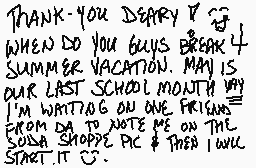 THANK-YOU DEARY !
WHEN DO YOU GUYS BREAK 4
SUMMER VACATION. MAY IS
OUR LAST SCHOOL MONTH YAY
I'M WAITING ON ONE FRIEND
FROM DA TO NOTE ME ON THE
SODA SHOPPE PIC & THEN I WILL
START IT